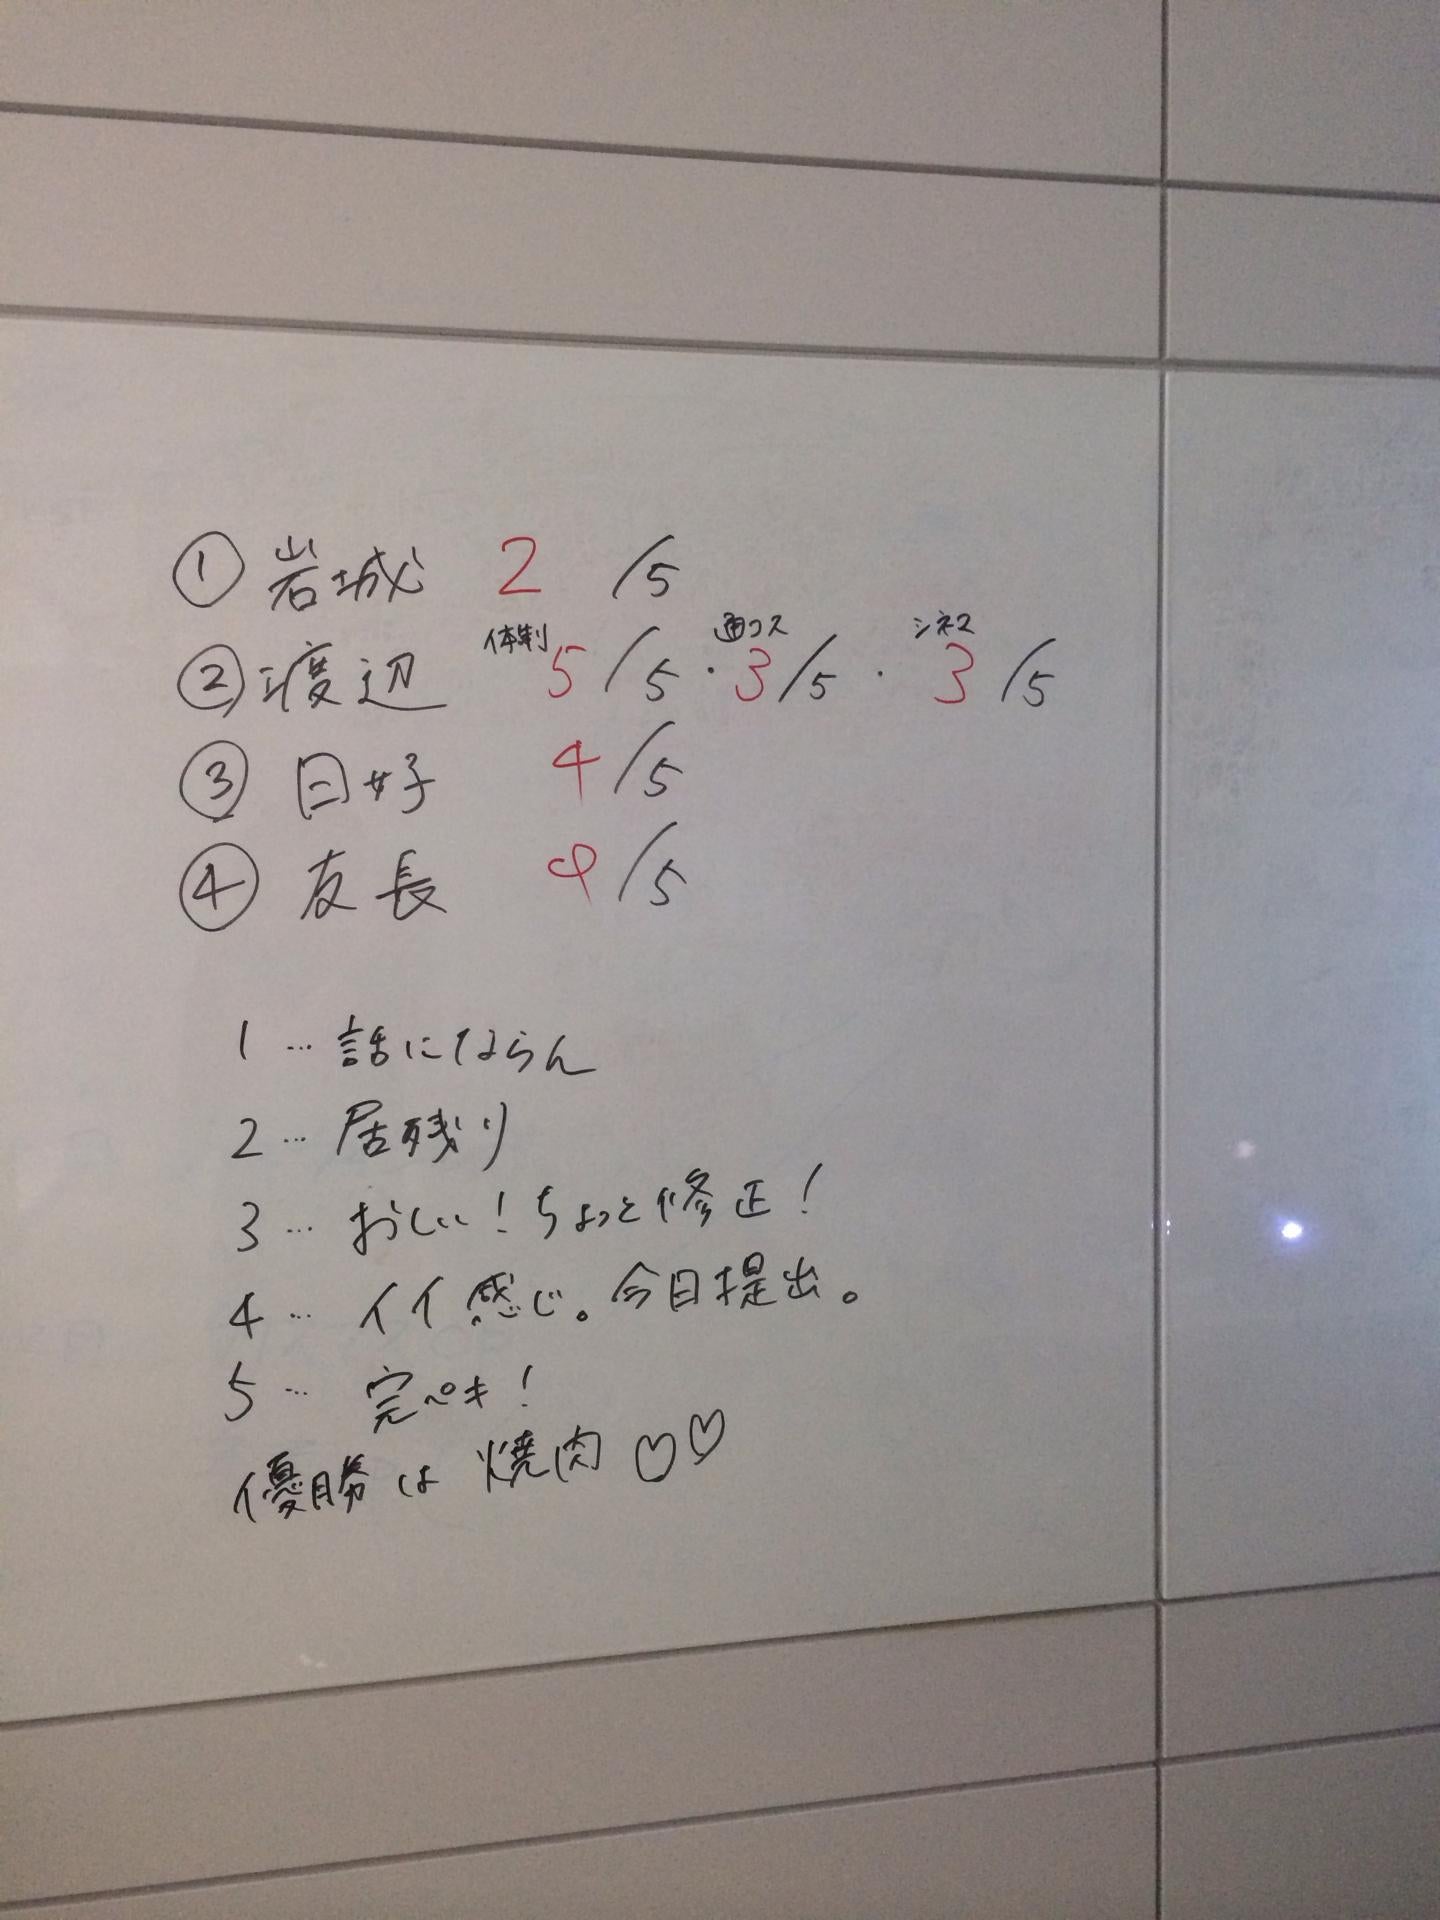 ① 岩城 2 /5
② 渡辺 体制 5/5・通コス 3/5・シネマ 3/5
③ 日好 4/5
④ 友長 4/5
1 … 話にならん
2 … 居残り
3 … おしい！ちょっと修正！
4 … イイ感じ。今日提出。
5 … 完ペキ！
優勝は焼肉♡♡